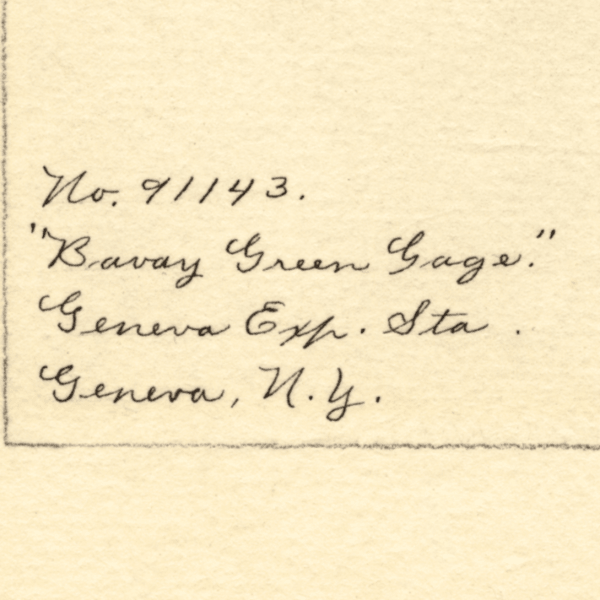 No. 91143.
"Bavay Green Gage."
Geneva Exp. Sta.
Geneva, N.Y.